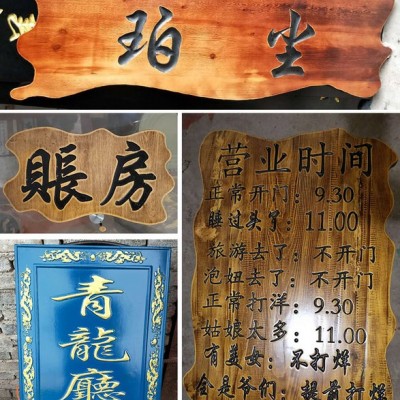 珀尘
賬房
青龍廳
营业时间
正常开门：9.30
睡过头了：11.00
旅游去了：不开门
泡妞去了：不开门
正常打洋：9.30
姑娘太多：11.00
有美女：不打烊
全是爷们：提前打烊